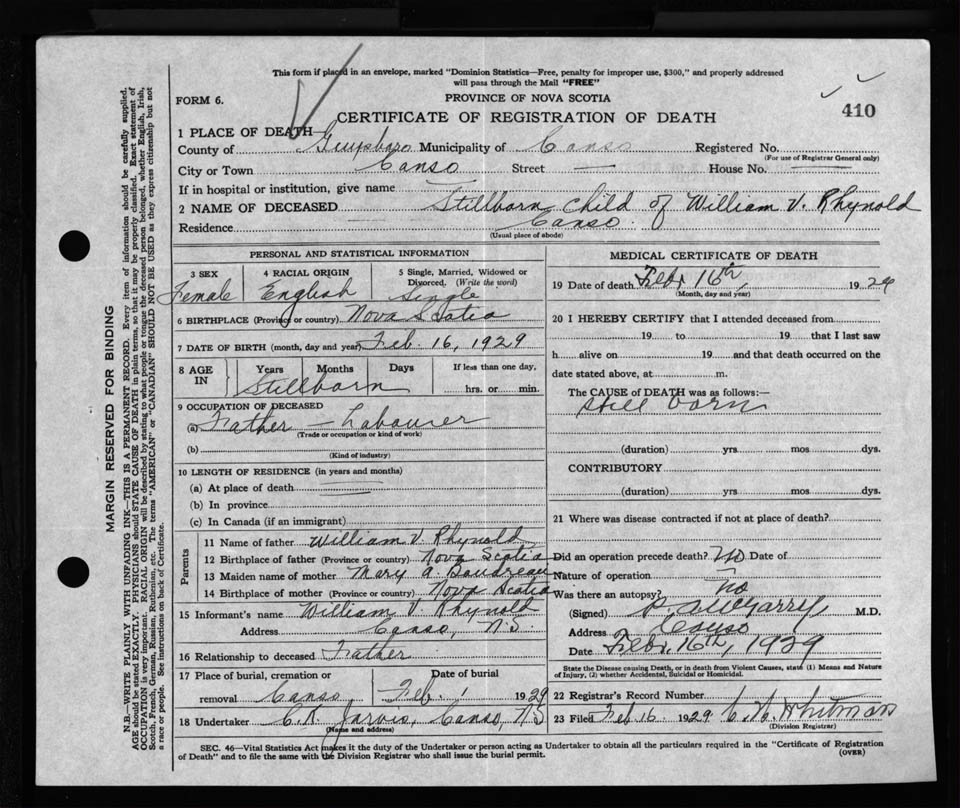 This form if placed in an envelope, marked "Dominion Statistics—Free, penalty for improper use, $300," and properly addressed
will pass through the Mail "FREE"
FORM 6.
PROVINCE OF NOVA SCOTIA
CERTIFICATE OF REGISTRATION OF DEATH
410
1 PLACE OF DEATH—
County of Guysboro Municipality of Canso Registered No.
(For use of Registrar General only)
City or Town Canso Street — House No. —
If in hospital or institution, give name —
2 NAME OF DECEASED Stillborn Child of William V. Rhynold
Residence Canso.
(Usual place of abode)
PERSONAL AND STATISTICAL INFORMATION
3 SEX 4 RACIAL ORIGIN 5 Single, Married, Widowed or Divorced. (Write the word)
Female English Single
6 BIRTHPLACE (Province or country) Nova Scotia
7 DATE OF BIRTH (month, day and year) Feb. 16, 1929
8 AGE IN Years Months Days If less than one day,
Stillborn hrs. or min.
9 OCCUPATION OF DECEASED
(a) Father — Labourer
(Trade or occupation or kind of work)
(b)
(Kind of industry)
10 LENGTH OF RESIDENCE (in years and months)
(a) At place of death
(b) In province
(c) In Canada (if an immigrant)
Parents
11 Name of father William V. Rhynold
12 Birthplace of father (Province or country) Nova Scotia
13 Maiden name of mother Mary A. Boudreau
14 Birthplace of mother (Province or country) Nova Scotia
15 Informant's name William V. Rhynold
Address Canso, N.S.
16 Relationship to deceased Father
17 Place of burial, cremation or removal Canso Date of burial Feb. 1 1929
18 Undertaker C. R. Jarvis, Canso, N.S
(Name and address)
MEDICAL CERTIFICATE OF DEATH
19 Date of death Febr 16th, 1929
(Month, day and year)
20 I HEREBY CERTIFY that I attended deceased from
19 to 19 that I last saw
h alive on 19 and that death occurred on the
date stated above, at m.
The CAUSE of DEATH was as follows:—
still born
(duration) yrs. mos dys.
CONTRIBUTORY
(duration) yrs. mos. dys.
21 Where was disease contracted if not at place of death?
Did an operation precede death? No Date of
Nature of operation —
Was there an autopsy? No
(Signed) McGarry M.D.
Address Canso
Date Febr. 16th, 1929
State the Disease causing Death, or in death from Violent Causes, state (1) Means and Nature
of Injury, (2) whether Accidental, Suicidal or Homicidal.
22 Registrar's Record Number
23 Filed Feb 16 1929 Whitman
(Division Registrar)
SEC. 46—Vital Statistics Act makes it the duty of the Undertaker or person acting as Undertaker to obtain all the particulars required in the "Certificate of Registration
of Death" and to file the same with the Division Registrar who shall issue the burial permit.
(OVER)
MARGIN RESERVED FOR BINDING
N.B.—WRITE PLAINLY WITH UNFADING INK—THIS IS A PERMANENT RECORD. Every item of information should be carefully supplied.
AGE should be stated EXACTLY. PHYSICIANS should STATE CAUSE OF DEATH in plain terms, so that it may be properly classified. Exact statement of
OCCUPATION is very important. RACIAL ORIGIN will be described by stating to what people or tongue the deceased person belonged, whether English, Irish,
Scotch, French, German, Russian, Ruthenian, etc. The terms "AMERICAN" or "CANADIAN" SHOULD NOT BE USED as they express citizenship but not
a race or people. See instructions on back of Certificate.